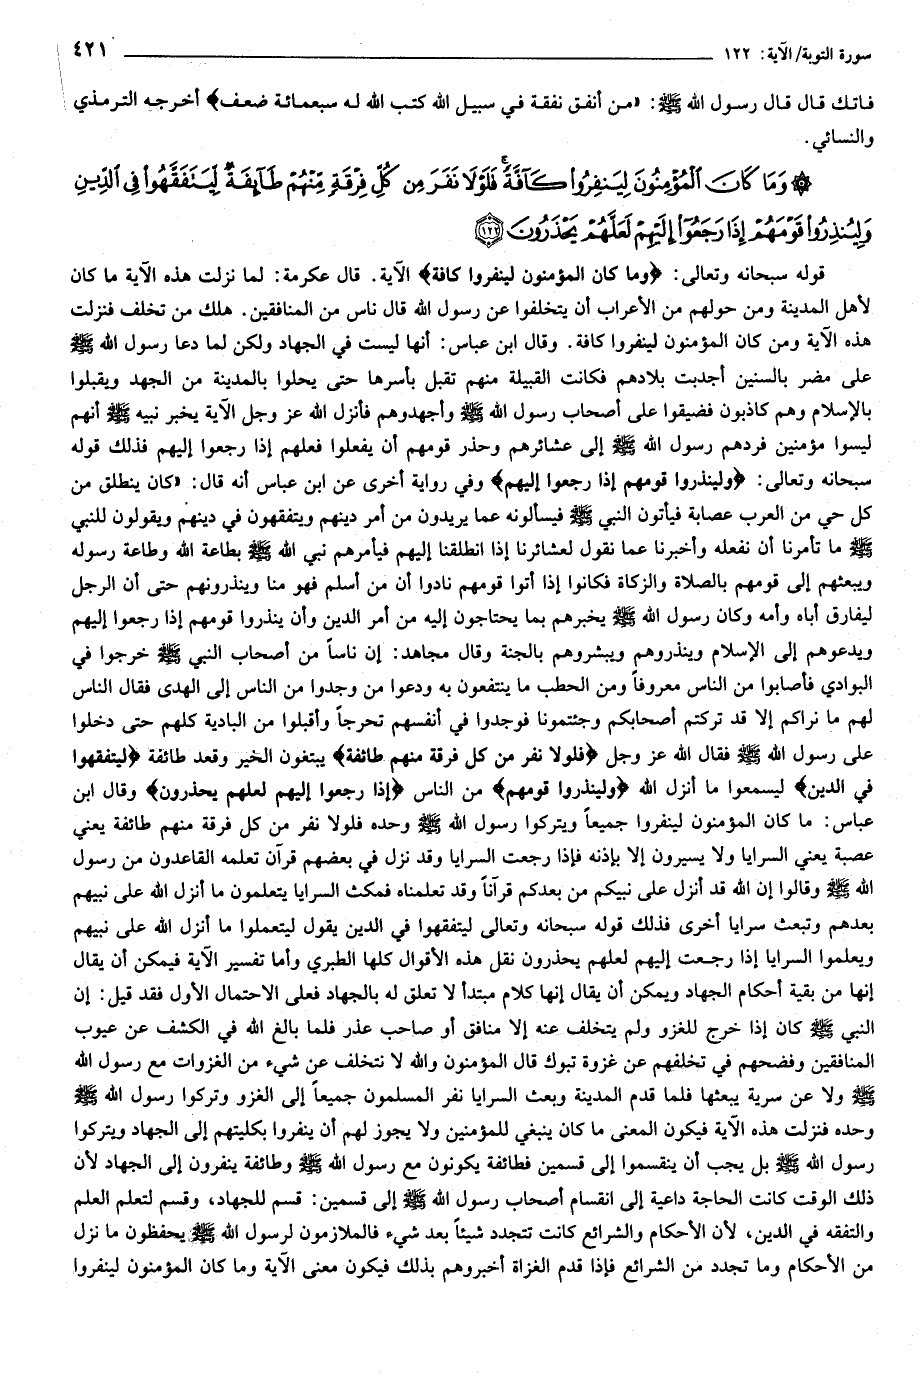 سورة التوبة/ الآية: ١٢٢ ٤٢١
فاتك قال قال رسول الله ﷺ: «من أنفق نفقة في سبيل الله كتب الله له سبعمائة ضعف﴾ أخرجه الترمذي
والنسائي.
۞ وَمَا كَانَ ٱلْمُؤْمِنُونَ لِيَنفِرُوا۟ كَآفَّةً ۚ فَلَوْلَا نَفَرَ مِن كُلِّ فِرْقَةٍ مِّنْهُمْ طَآئِفَةٌ لِّيَتَفَقَّهُوا۟ فِى ٱلدِّينِ
وَلِيُنذِرُوا۟ قَوْمَهُمْ إِذَا رَجَعُوٓا۟ إِلَيْهِمْ لَعَلَّهُمْ يَحْذَرُونَ ﴿١٢٢﴾
قوله سبحانه وتعالى: ﴿وما كان المؤمنون لينفروا كافة﴾ الآية. قال عكرمة: لما نزلت هذه الآية ما كان
لأهل المدينة ومن حولهم من الأعراب أن يتخلفوا عن رسول الله قال ناس من المنافقين. هلك من تخلف فنزلت
هذه الآية ومن كان المؤمنون لينفروا كافة. وقال ابن عباس: أنها ليست في الجهاد ولكن لما دعا رسول الله ﷺ
على مضر بالسنين أجدبت بلادهم فكانت القبيلة منهم تقبل بأسرها حتى يحلوا بالمدينة من الجهد ويقبلوا
بالإسلام وهم كاذبون فضيقوا على أصحاب رسول الله ﷺ وأجهدوهم فأنزل الله عز وجل الآية يخبر نبيه ﷺ أنهم
ليسوا مؤمنين فردهم رسول الله ﷺ إلى عشائرهم وحذر قومهم أن يفعلوا فعلهم إذا رجعوا إليهم فذلك قوله
سبحانه وتعالى: ﴿ولينذروا قومهم إذا رجعوا إليهم﴾ وفي رواية أخرى عن ابن عباس أنه قال: «كان ينطلق من
كل حي من العرب عصابة فيأتون النبي ﷺ فيسألونه عما يريدون من أمر دينهم ويتفقهون في دينهم ويقولون للنبي
ﷺ ما تأمرنا أن نفعله وأخبرنا عما نقول لعشائرنا إذا انطلقنا إليهم فيأمرهم نبي الله ﷺ بطاعة الله وطاعة رسوله
ويبعثهم إلى قومهم بالصلاة والزكاة فكانوا إذا أتوا قومهم نادوا أن من أسلم فهو منا وينذرونهم حتى أن الرجل
ليفارق أباه وأمه وكان رسول الله ﷺ يخبرهم بما يحتاجون إليه من أمر الدين وأن ينذروا قومهم إذا رجعوا إليهم
ويدعوهم إلى الإسلام وينذروهم ويبشروهم بالجنة وقال مجاهد: إن ناساً من أصحاب النبي ﷺ خرجوا في
البوادي فأصابوا من الناس معروفاً ومن الحطب ما ينتفعون به ودعوا من وجدوا من الناس إلى الهدى فقال الناس
لهم ما نراكم إلا قد تركتم أصحابكم وجئتمونا فوجدوا في أنفسهم تحرجاً وأقبلوا من البادية كلهم حتى دخلوا
على رسول الله ﷺ فقال الله عز وجل ﴿فلولا نفر من كل فرقة منهم طائفة﴾ يبتغون الخير وقعد طائفة ﴿ليتفقهوا
في الدين﴾ ليسمعوا ما أنزل الله ﴿ولينذروا قومهم﴾ من الناس ﴿إذا رجعوا إليهم لعلهم يحذرون﴾ وقال ابن
عباس: ما كان المؤمنون لينفروا جميعاً ويتركوا رسول الله ﷺ وحده فلولا نفر من كل فرقة منهم طائفة يعني
عصبة يعني السرايا ولا يسيرون إلا بإذنه فإذا رجعت السرايا وقد نزل في بعضهم قرآن تعلمه القاعدون من رسول
الله ﷺ وقالوا إن الله قد أنزل على نبيكم من بعدكم قرآناً وقد تعلمناه فمكث السرايا يتعلمون ما أنزل الله على نبيهم
بعدهم وتبعث سرايا أخرى فذلك قوله سبحانه وتعالى ليتفقهوا في الدين يقول ليتعملوا ما أنزل الله على نبيهم
ويعلموا السرايا إذا رجعت إليهم لعلهم يحذرون نقل هذه الأقوال كلها الطبري وأما تفسير الآية فيمكن أن يقال
إنها من بقية أحكام الجهاد ويمكن أن يقال إنها كلام مبتدأ لا تعلق له بالجهاد فعلى الاحتمال الأول فقد قيل: إن
النبي ﷺ كان إذا خرج للغزو ولم يتخلف عنه إلا منافق أو صاحب عذر فلما بالغ الله في الكشف عن عيوب
المنافقين وفضحهم في تخلفهم عن غزوة تبوك قال المؤمنون والله لا نتخلف عن شيء من الغزوات مع رسول الله
ﷺ ولا عن سرية يبعثها فلما قدم المدينة وبعث السرايا نفر المسلمون جميعاً إلى الغزو وتركوا رسول الله ﷺ
وحده فنزلت هذه الآية فيكون المعنى ما كان ينبغي للمؤمنين ولا يجوز لهم أن ينفروا بكليتهم إلى الجهاد ويتركوا
رسول الله ﷺ بل يجب أن ينقسموا إلى قسمين فطائفة يكونون مع رسول الله ﷺ وطائفة ينفرون إلى الجهاد لأن
ذلك الوقت كانت الحاجة داعية إلى انقسام أصحاب رسول الله ﷺ إلى قسمين: قسم للجهاد، وقسم لتعلم العلم
والتفقه في الدين، لأن الأحكام والشرائع كانت تتجدد شيئاً بعد شيء فالملازمون لرسول الله ﷺ يحفظون ما نزل
من الأحكام وما تجدد من الشرائع فإذا قدم الغزاة أخبروهم بذلك فيكون معنى الآية وما كان المؤمنون لينفروا